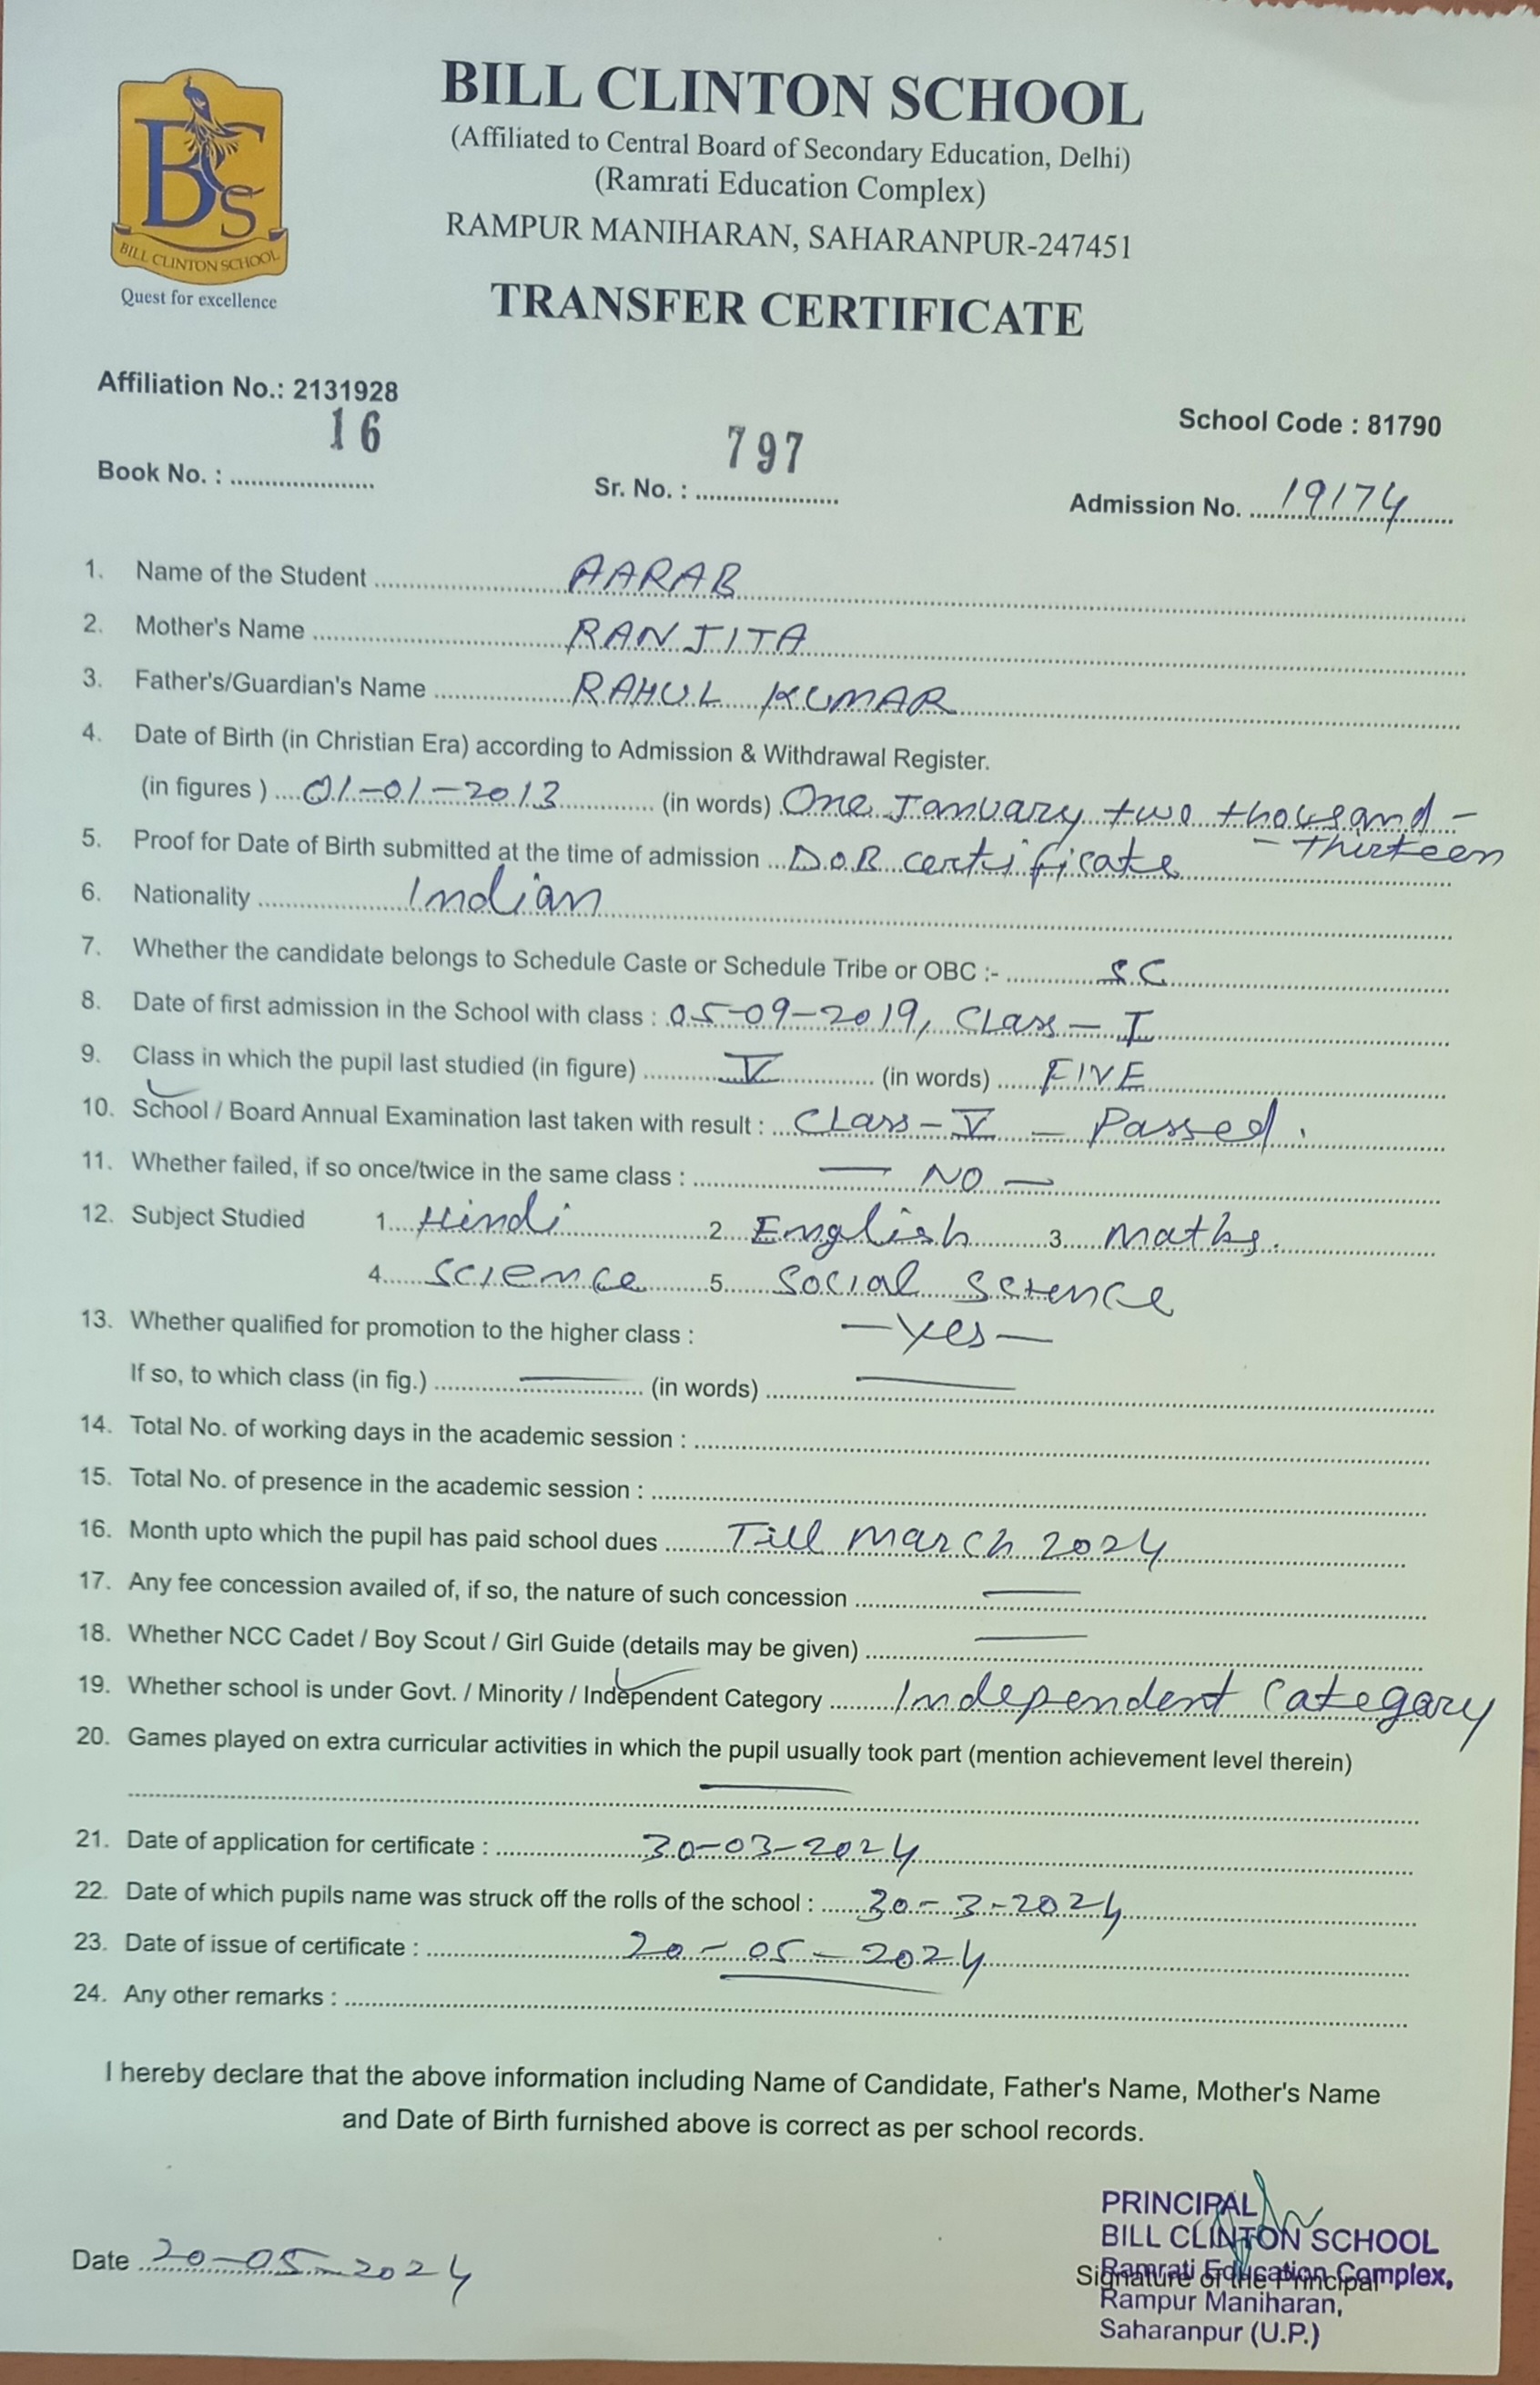 BILL CLINTON SCHOOL
(Affiliated to Central Board of Secondary Education, Delhi)
(Ramrati Education Complex)
RAMPUR MANIHARAN, SAHARANPUR-247451
TRANSFER CERTIFICATE
BCS
BILL CLINTON SCHOOL
Quest for excellence
Affiliation No.: 2131928
School Code : 81790
Book No. : 16 Sr. No. : 797 Admission No. 19174
1. Name of the Student AARAB
2. Mother's Name RANJITA
3. Father's/Guardian's Name RAHUL KUMAR
4. Date of Birth (in Christian Era) according to Admission & Withdrawal Register.
(in figures ) 01-01-2013 (in words) One January two thousand -
- Thirteen
5. Proof for Date of Birth submitted at the time of admission D.O.B certificate
6. Nationality Indian
7. Whether the candidate belongs to Schedule Caste or Schedule Tribe or OBC :- SC
8. Date of first admission in the School with class : 05-09-2019, Class - I
9. Class in which the pupil last studied (in figure) V (in words) FIVE
10. School / Board Annual Examination last taken with result : Class - V - Passed.
11. Whether failed, if so once/twice in the same class : — NO —
12. Subject Studied 1. Hindi 2. English 3. maths.
4. Science 5. Social Science
13. Whether qualified for promotion to the higher class : — Yes —
If so, to which class (in fig.) — (in words) —
14. Total No. of working days in the academic session :
15. Total No. of presence in the academic session :
16. Month upto which the pupil has paid school dues Till March 2024
17. Any fee concession availed of, if so, the nature of such concession —
18. Whether NCC Cadet / Boy Scout / Girl Guide (details may be given) —
19. Whether school is under Govt. / Minority / Independent Category Independent Categary
20. Games played on extra curricular activities in which the pupil usually took part (mention achievement level therein)
—
21. Date of application for certificate : 30-03-2024
22. Date of which pupils name was struck off the rolls of the school : 30-3-2024
23. Date of issue of certificate : 20-05-2024
24. Any other remarks :
I hereby declare that the above information including Name of Candidate, Father's Name, Mother's Name
and Date of Birth furnished above is correct as per school records.
Date 20-05-2024
PRINCIPAL
BILL CLINTON SCHOOL
Ramrati Education Complex,
Signature of the Principal
Rampur Maniharan,
Saharanpur (U.P.)